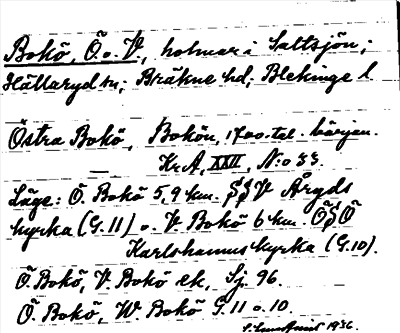 Bokö, Ö. o. V., holmar i Saltsjön;
Hällaryd sn; Bräkne hd; Blekinge l.
Östra Bokö, Bokön, 1700-tal. början.
Kr. A, XXII, No 33.
Läge: Ö. Bokö 5,9 km. SSV Åryds
kyrka (G. 11) o. V. Bokö 6 km. ÖSÖ
Karlshamns kyrka (G. 10).
Ö. Bokö, V. Bokö ek, Sj. 96.
Ö. Bokö, W. Bokö G. 11 o. 10.
1936.